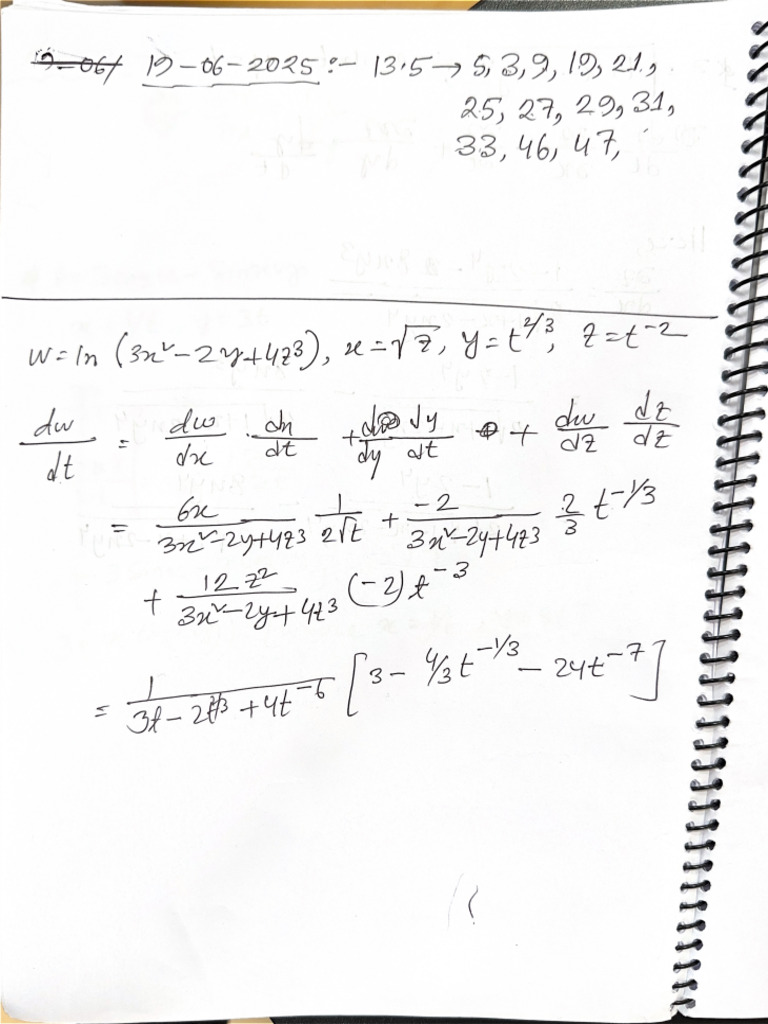 19-06-2025 :- 13.5 → 5, 3, 9, 19, 21,
25, 27, 29, 31,
33, 46, 47,
w = ln (3x² - 2y + 4z³), x = √z, y = t^2/3, z = t^-2
dw/dt = dw/dx · dx/dt + dw/dy dy/dt + dw/dz dz/dz
= 6x/(3x² - 2y + 4z³) 1/(2√t) + -2/(3x² - 2y + 4z³) 2/3 t^-1/3
+ 12z²/(3x² - 2y + 4z³) (-2) t^-3
= 1/(3t - 2t^2/3 + 4t^-6) [3 - 4/3 t^-1/3 - 24t^-7]